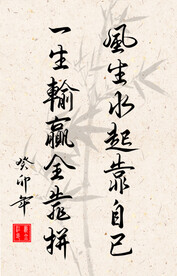 風生水起靠自己
一生輸贏全靠拼
癸卯年